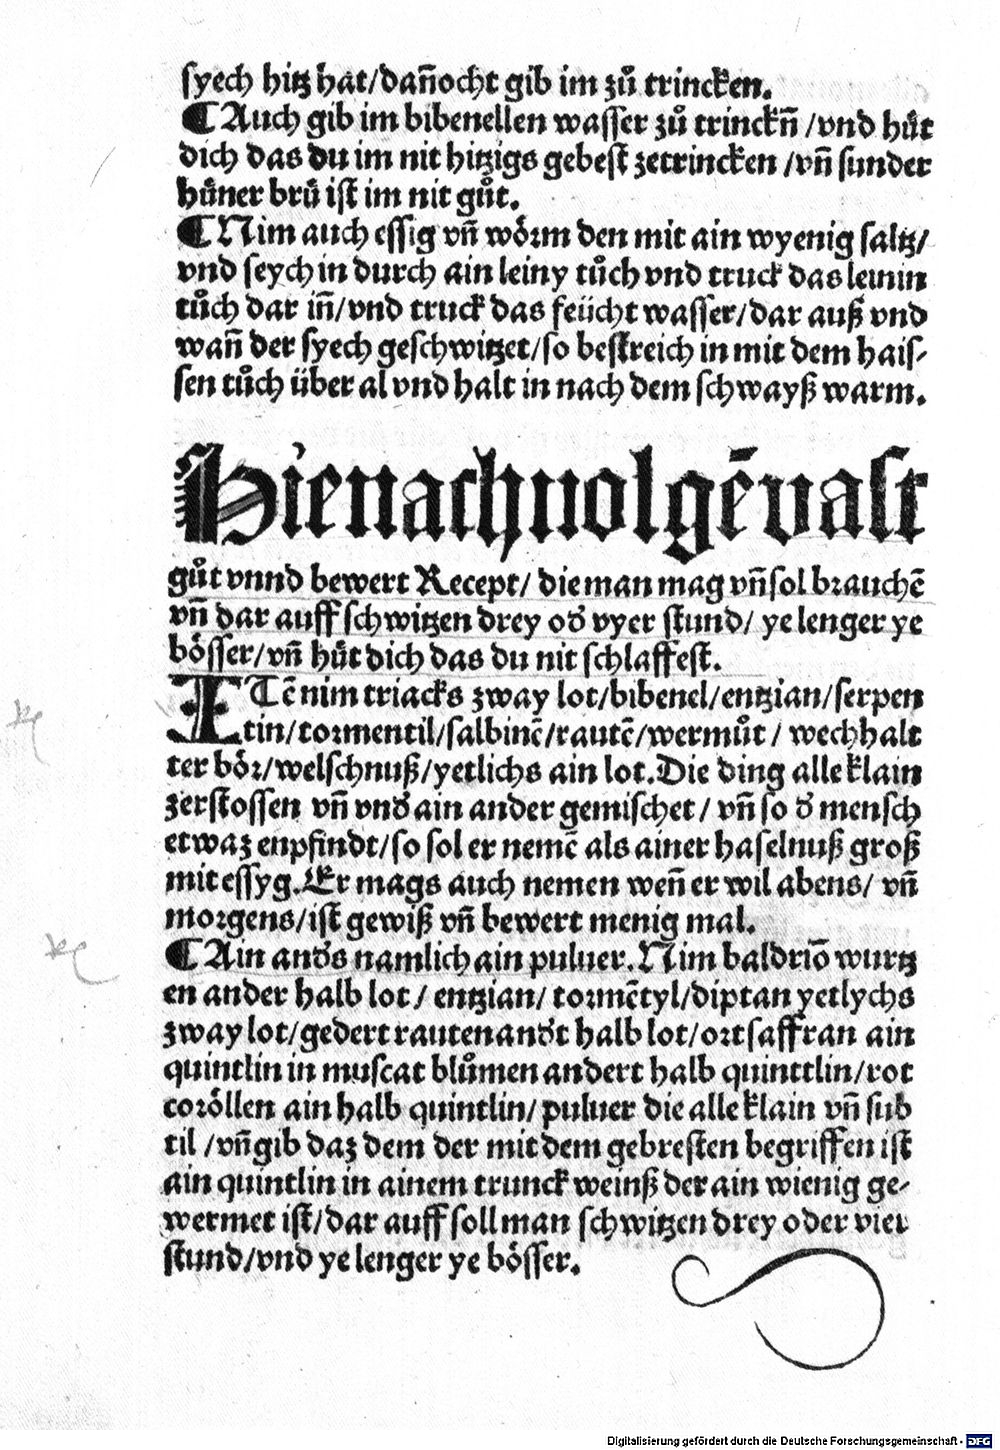 syech hitz hat/dañocht gib im zů trincken.
¶ Auch gib im bibenellen wasser zů trinckñ /vnd hüt
dich das du im nit hitzigs gebest zetrincken /vñ sunder
hüner brü ist im nit gůt.
¶ Nim auch essig vñ wörm den mit ain wyenig saltz/
vnd seych in durch ain leiny tůch vnd truck das leinin
tůch dar iñ/vnd truck das feücht wasser/dar auß vnd
wañ der syech geschwitzet/so bestreich in mit dem hais-
sen tůch über al vnd halt in nach dem schwayß warm.
Hienachuolgẽ vast
gůt vnnd bewert Recept/ die man mag vñ sol brauchẽ
vñ dar auff schwitzen drey od' vyer stund/ ye lenger ye
bösser/vñ hüt dich das du nit schlaffest.
ITẽ nim triacks zway lot/bibenel/entzian/serpen
tin/tormentil/salbinẽ/rautẽ/wermůt / wechhalt
ter bör/welschnuß/yetlichs ain lot. Die ding alle klain
zerstossen vñ vnd' ain ander gemischet / vñ so d' mensch
etwaz enpfindt/so sol er nemẽ als ainer haselnuß groß
mit essyg. Er mags auch nemen weñ er wil abens/ vñ
morgens/ist gewiß vñ bewert menig mal.
¶ Ain and's namlich ain puluer. Nim baldriõ wurtz
en ander halb lot / entzian/ tormẽtyl/diptan yetlychs
zway lot/gedert rauten and't halb lot/ort saffran ain
quintlin in muscat blůmen andert halb quinttlin/rot
coröllen ain halb quintlin/ puluer die alle klain vñ sub
til /vñ gib daz dem der mit dem gebresten begriffen ist
ain quintlin in ainem trunck weinß der ain wienig ge-
wermet ist/dar auff soll man schwitzen drey oder vier
stund/vnd ye lenger ye bösser.
Digitalisierung gefördert durch die Deutsche Forschungsgemeinschaft - DFG